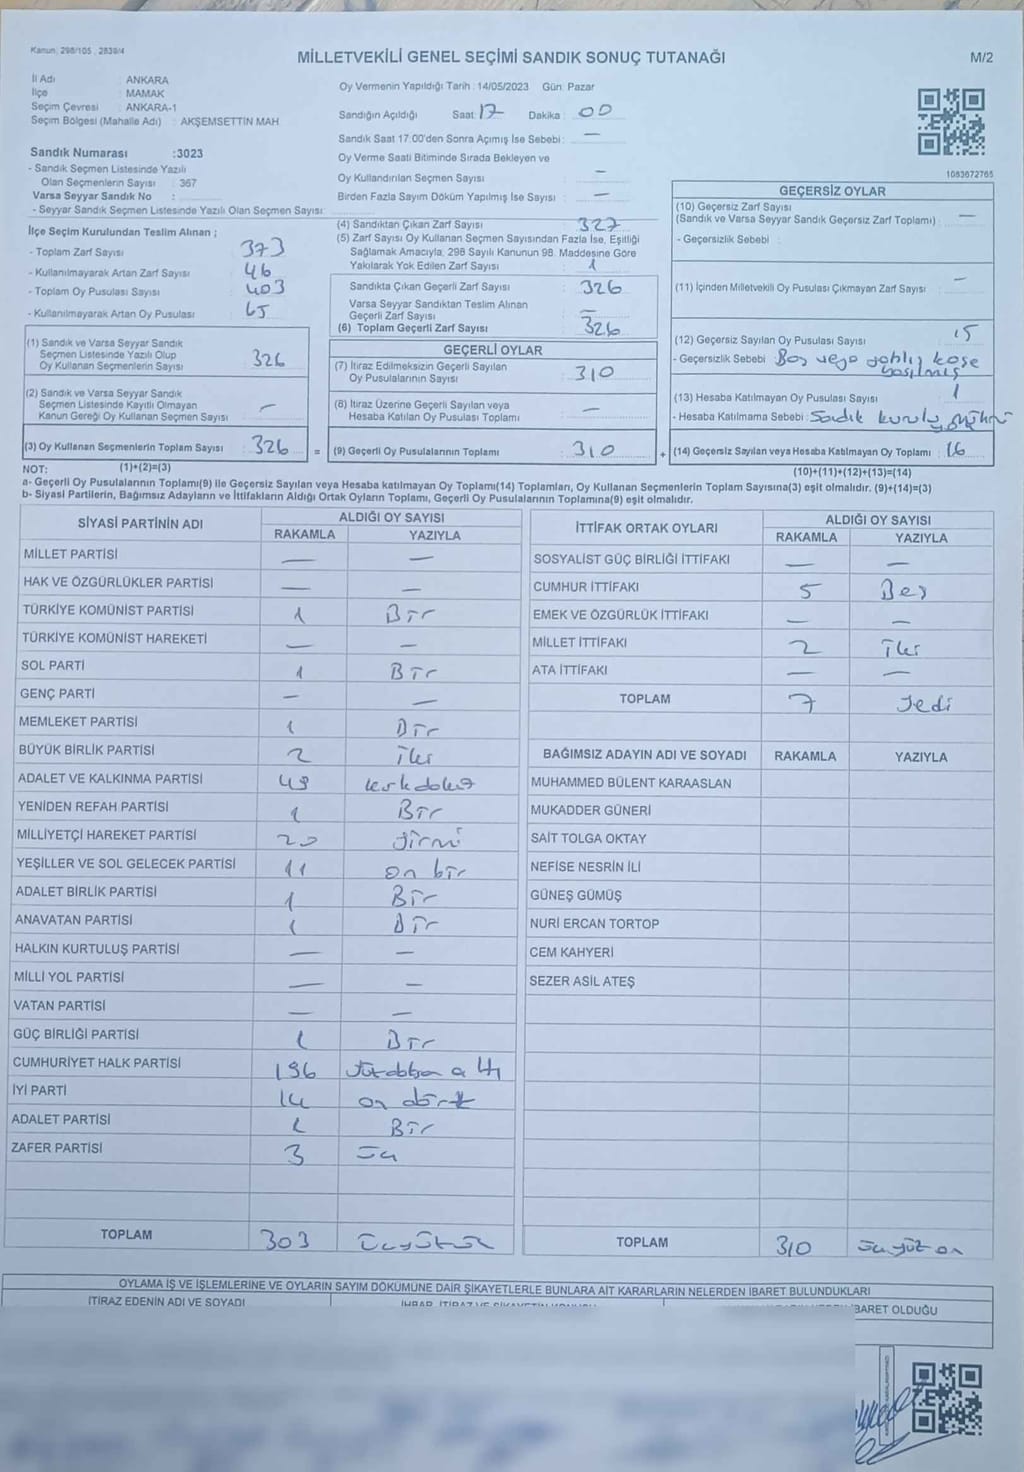 Kanun: 298/105 , 2839/4
MİLLETVEKİLİ GENEL SEÇİMİ SANDIK SONUÇ TUTANAĞI
M/2
İl Adı : ANKARA
İlçe : MAMAK
Seçim Çevresi : ANKARA-1
Seçim Bölgesi (Mahalle Adı) : AKŞEMSETTİN MAH
Sandık Numarası :3023
- Sandık Seçmen Listesinde Yazılı
Olan Seçmenlerin Sayısı : 367
Varsa Seyyar Sandık No :
- Seyyar Sandık Seçmen Listesinde Yazılı Olan Seçmen Sayısı:
İlçe Seçim Kurulundan Teslim Alınan ;
- Toplam Zarf Sayısı : 373
- Kullanılmayarak Artan Zarf Sayısı : 46
- Toplam Oy Pusulası Sayısı : 403
- Kullanılmayarak Artan Oy Pusulası : 65
(1) Sandık ve Varsa Seyyar Sandık
Seçmen Listesinde Yazılı Olup
Oy Kullanan Seçmenlerin Sayısı : 326
(2) Sandık ve Varsa Seyyar Sandık
Seçmen Listesinde Kayıtlı Olmayan
Kanun Gereği Oy Kullanan Seçmen Sayısı : —
(3) Oy Kullanan Seçmenlerin Toplam Sayısı : 326 =
Oy Vermenin Yapıldığı Tarih : 14/05/2023 Gün: Pazar
Sandığın Açıldığı Saat: 17 Dakika : 00
Sandık Saat 17:00'den Sonra Açımış İse Sebebi : —
Oy Verme Saati Bitiminde Sırada Bekleyen ve
Oy Kullandırılan Seçmen Sayısı : —
Birden Fazla Sayım Döküm Yapılmış İse Sayısı : —
(4) Sandıktan Çıkan Zarf Sayısı : 327
(5) Zarf Sayısı Oy Kullanan Seçmen Sayısından Fazla İse, Eşitliği
Sağlamak Amacıyla, 298 Sayılı Kanunun 98. Maddesine Göre
Yakılarak Yok Edilen Zarf Sayısı : 1
Sandıkta Çıkan Geçerli Zarf Sayısı : 326
Varsa Seyyar Sandıktan Teslim Alınan
Geçerli Zarf Sayısı : —
(6) Toplam Geçerli Zarf Sayısı : 326
GEÇERLİ OYLAR
(7) İtiraz Edilmeksizin Geçerli Sayılan
Oy Pusulalarının Sayısı : 310
(8) İtiraz Üzerine Geçerli Sayılan veya
Hesaba Katılan Oy Pusulası Toplamı : —
(9) Geçerli Oy Pusulalarının Toplamı : 310 +
1083672765
GEÇERSİZ OYLAR
(10) Geçersiz Zarf Sayısı
(Sandık ve Varsa Seyyar Sandık Geçersiz Zarf Toplamı) : —
- Geçersizlik Sebebi :
(11) İçinden Milletvekili Oy Pusulası Çıkmayan Zarf Sayısı : —
(12) Geçersiz Sayılan Oy Pusulası Sayısı : 15
- Geçersizlik Sebebi : Boş veya kaşe
basılmış
(13) Hesaba Katılmayan Oy Pusulası Sayısı : 1
- Hesaba Katılmama Sebebi : Sandık kurulu mührü
(14) Geçersiz Sayılan veya Hesaba Katılmayan Oy Toplamı : 16
NOT: (1)+(2)=(3)
(10)+(11)+(12)+(13)=(14)
a- Geçerli Oy Pusulalarının Toplamı(9) ile Geçersiz Sayılan veya Hesaba katılmayan Oy Toplamı(14) Toplamları, Oy Kullanan Seçmenlerin Toplam Sayısına(3) eşit olmalıdır. (9)+(14)=(3)
b- Siyasi Partilerin, Bağımsız Adayların ve İttifakların Aldığı Ortak Oyların Toplamı, Geçerli Oy Pusulalarının Toplamına(9) eşit olmalıdır.
SİYASİ PARTİNİN ADI
ALDIĞI OY SAYISI
RAKAMLA YAZIYLA
MİLLET PARTİSİ — —
HAK VE ÖZGÜRLÜKLER PARTİSİ — —
TÜRKİYE KOMÜNİST PARTİSİ 1 Bir
TÜRKİYE KOMÜNİST HAREKETİ — —
SOL PARTİ 1 Bir
GENÇ PARTİ — —
MEMLEKET PARTİSİ 1 Bir
BÜYÜK BİRLİK PARTİSİ 2 iki
ADALET VE KALKINMA PARTİSİ 49 kırkdokuz
YENİDEN REFAH PARTİSİ 1 Bir
MİLLİYETÇİ HAREKET PARTİSİ 20 yirmi
YEŞİLLER VE SOL GELECEK PARTİSİ 11 on bir
ADALET BİRLİK PARTİSİ 1 Bir
ANAVATAN PARTİSİ 1 Bir
HALKIN KURTULUŞ PARTİSİ — —
MİLLİ YOL PARTİSİ — —
VATAN PARTİSİ — —
GÜÇ BİRLİĞİ PARTİSİ 1 Bir
CUMHURİYET HALK PARTİSİ 196 yüzdoksan altı
İYİ PARTİ 14 on dört
ADALET PARTİSİ 1 Bir
ZAFER PARTİSİ 3 üç
TOPLAM 303 üçyüzüç
İTTİFAK ORTAK OYLARI
ALDIĞI OY SAYISI
RAKAMLA YAZIYLA
SOSYALİST GÜÇ BİRLİĞİ İTTİFAKI — —
CUMHUR İTTİFAKI 5 Beş
EMEK VE ÖZGÜRLÜK İTTİFAKI — —
MİLLET İTTİFAKI 2 iki
ATA İTTİFAKI — —
TOPLAM 7 yedi
BAĞIMSIZ ADAYIN ADI VE SOYADI RAKAMLA YAZIYLA
MUHAMMED BÜLENT KARAASLAN
MUKADDER GÜNERİ
SAİT TOLGA OKTAY
NEFİSE NESRİN İLİ
GÜNEŞ GÜMÜŞ
NURİ ERCAN TORTOP
CEM KAHYERİ
SEZER ASİL ATEŞ
TOPLAM 310 üç yüz on
OYLAMA İŞ VE İŞLEMLERİNE VE OYLARIN SAYIM DÖKÜMÜNE DAİR ŞİKAYETLERLE BUNLARA AİT KARARLARIN NELERDEN İBARET BULUNDUKLARI
İTİRAZ EDENİN ADI VE SOYADI
İBARET OLDUĞU